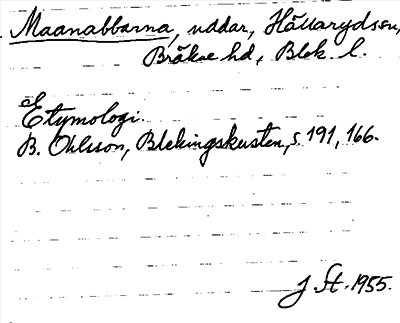 Maanabbarna, uddar, Hällarydssn,
Bräkne hd, Blek. l.
el
Etymologi.
B. Ohlsson, Blekingskusten, s. 191, 166.
J St. 1955.